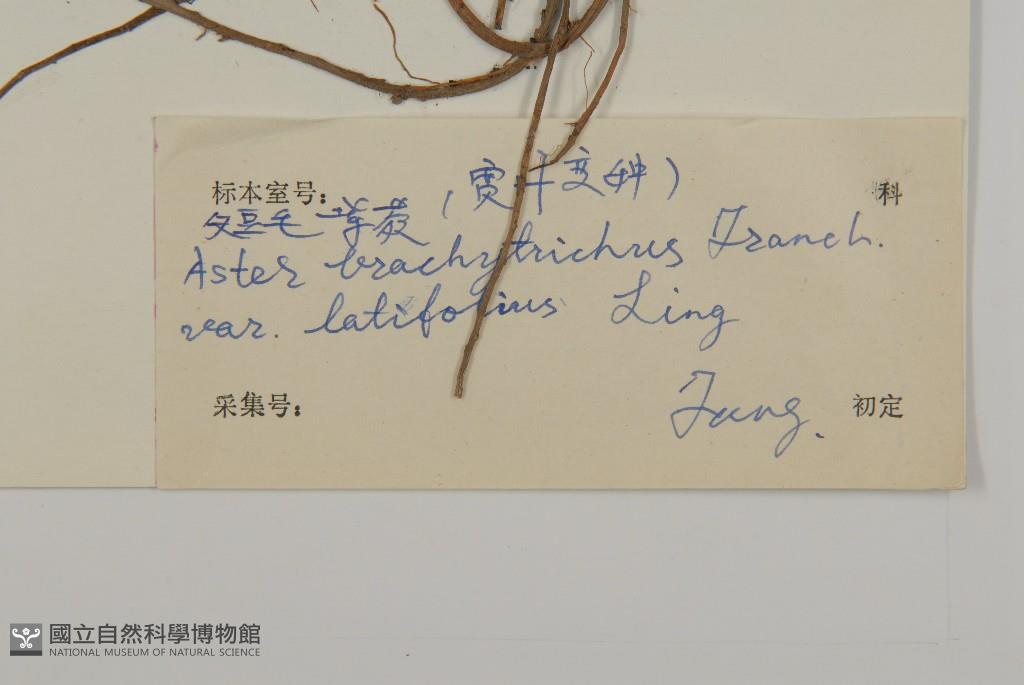 标本室号:
科
短毛紫菀(宽叶变种)
Aster brachytrichus Franch.
var. latifolius Ling
采集号:
Fang.
初定
國立自然科學博物館
NATIONAL MUSEUM OF NATURAL SCIENCE